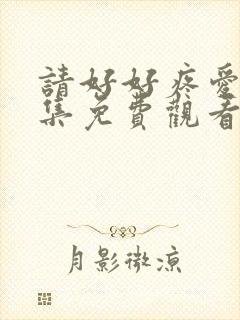 請好好疼愛
集免費觀看
月影微涼